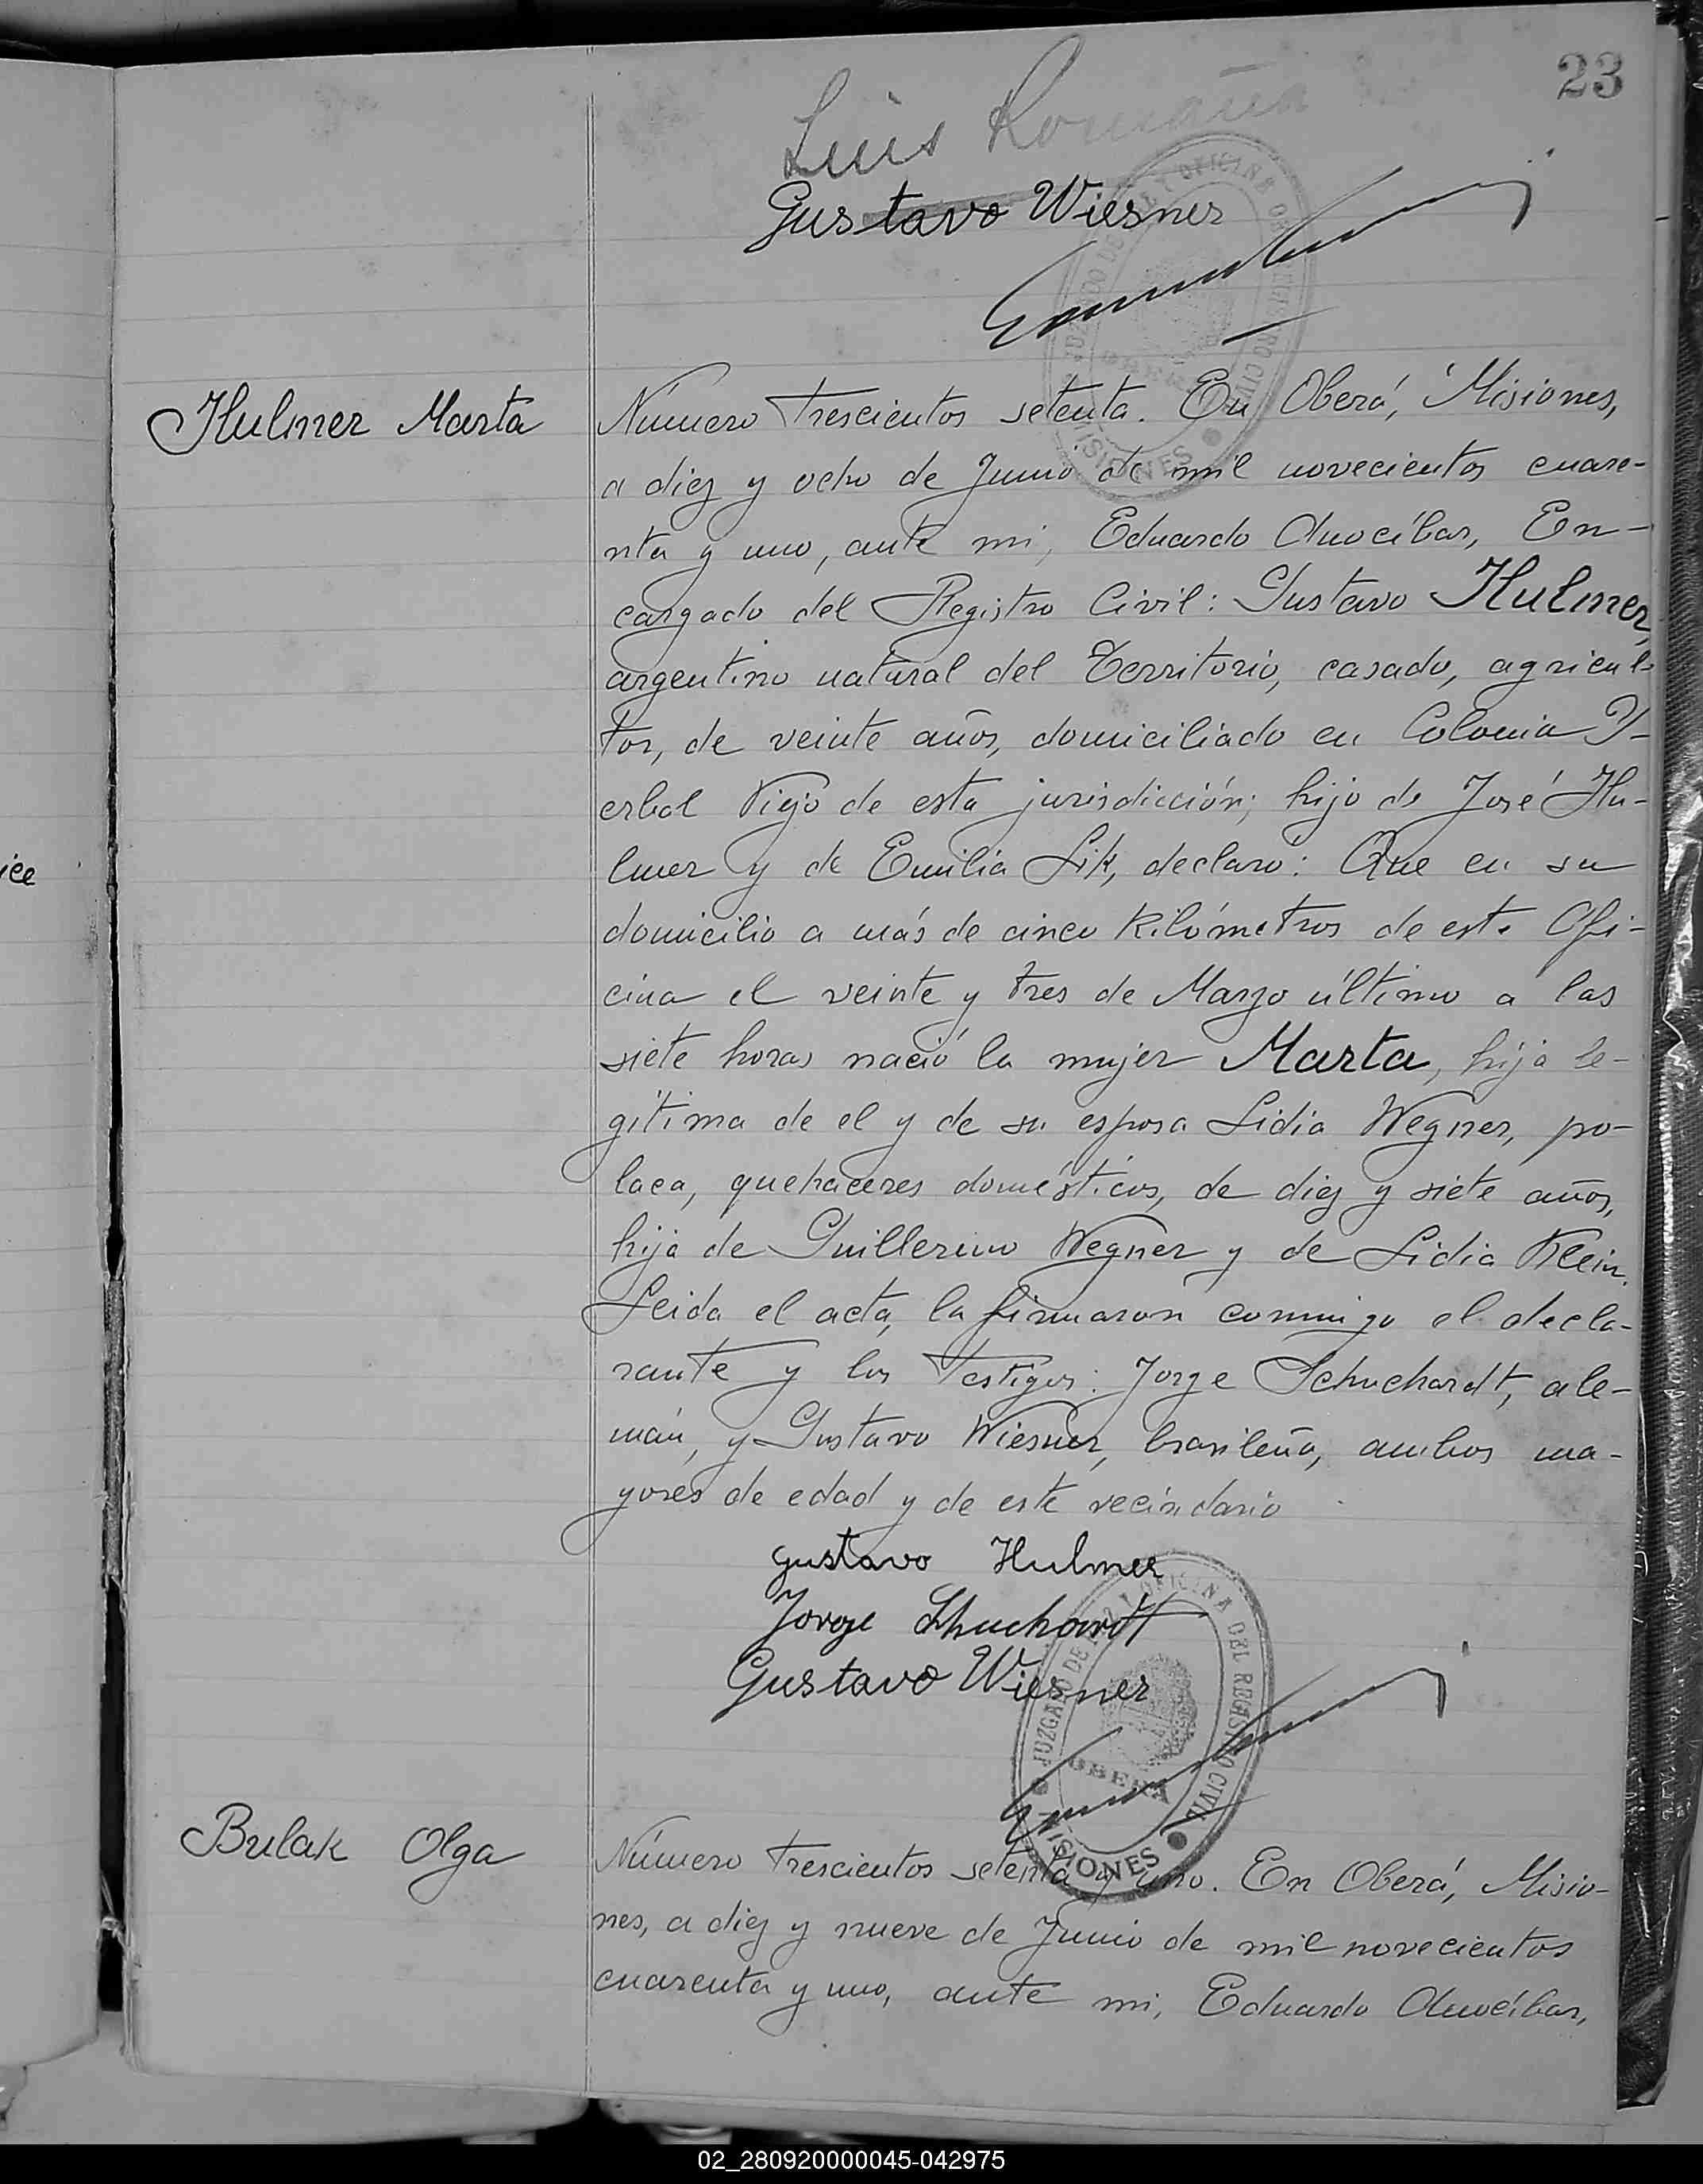 23
Luis Romaña
Gustavo Wiesner
Hulmer Marta
Número trescientos setenta. En Oberá, Misiones,
a diez y ocho de Junio de mil novecientos cuare-
nta y uno, ante mi, Eduardo Anocíbar, En-
cargado del Registro Civil: Gustavo Hulmer,
argentino natural del Territorio, casado, agricul-
tor, de veinte años, domiciliado en Colonia Y-
erbal Viejo de esta jurisdicción; hijo de José Hu-
lmer y de Emilia Lik, declaro: Que en su
domicilio a más de cinco kilómetros de esta Ofi-
cina el veinte y tres de Marzo último a las
siete horas nació la mujer Marta, hija le-
gítima de el y de su esposa Lidia Wegner, po-
laca, quehaceres domésticos, de diez y siete años,
hija de Guillermo Wegner y de Lidia Klein.
Leida el acta, la firmaron conmigo el decla-
rante y los testigos: Jorge Schuchardt, ale-
mán, y Gustavo Wiesner, brasileño, ambos ma-
yores de edad y de este vecindario
gustavo Hulmer
Jorge Schuchardt
Gustavo Wiesner
JUZGADO DE PAZ Y OFICINA DEL REGISTRO CIVIL
OBERA
MISIONES
Bulak Olga
Número trescientos setenta y uno. En Oberá, Misio-
nes, a diez y nueve de Junio de mil novecientos
cuarenta y uno, ante mi, Eduardo Anocíbar,
02_280920000045-042975